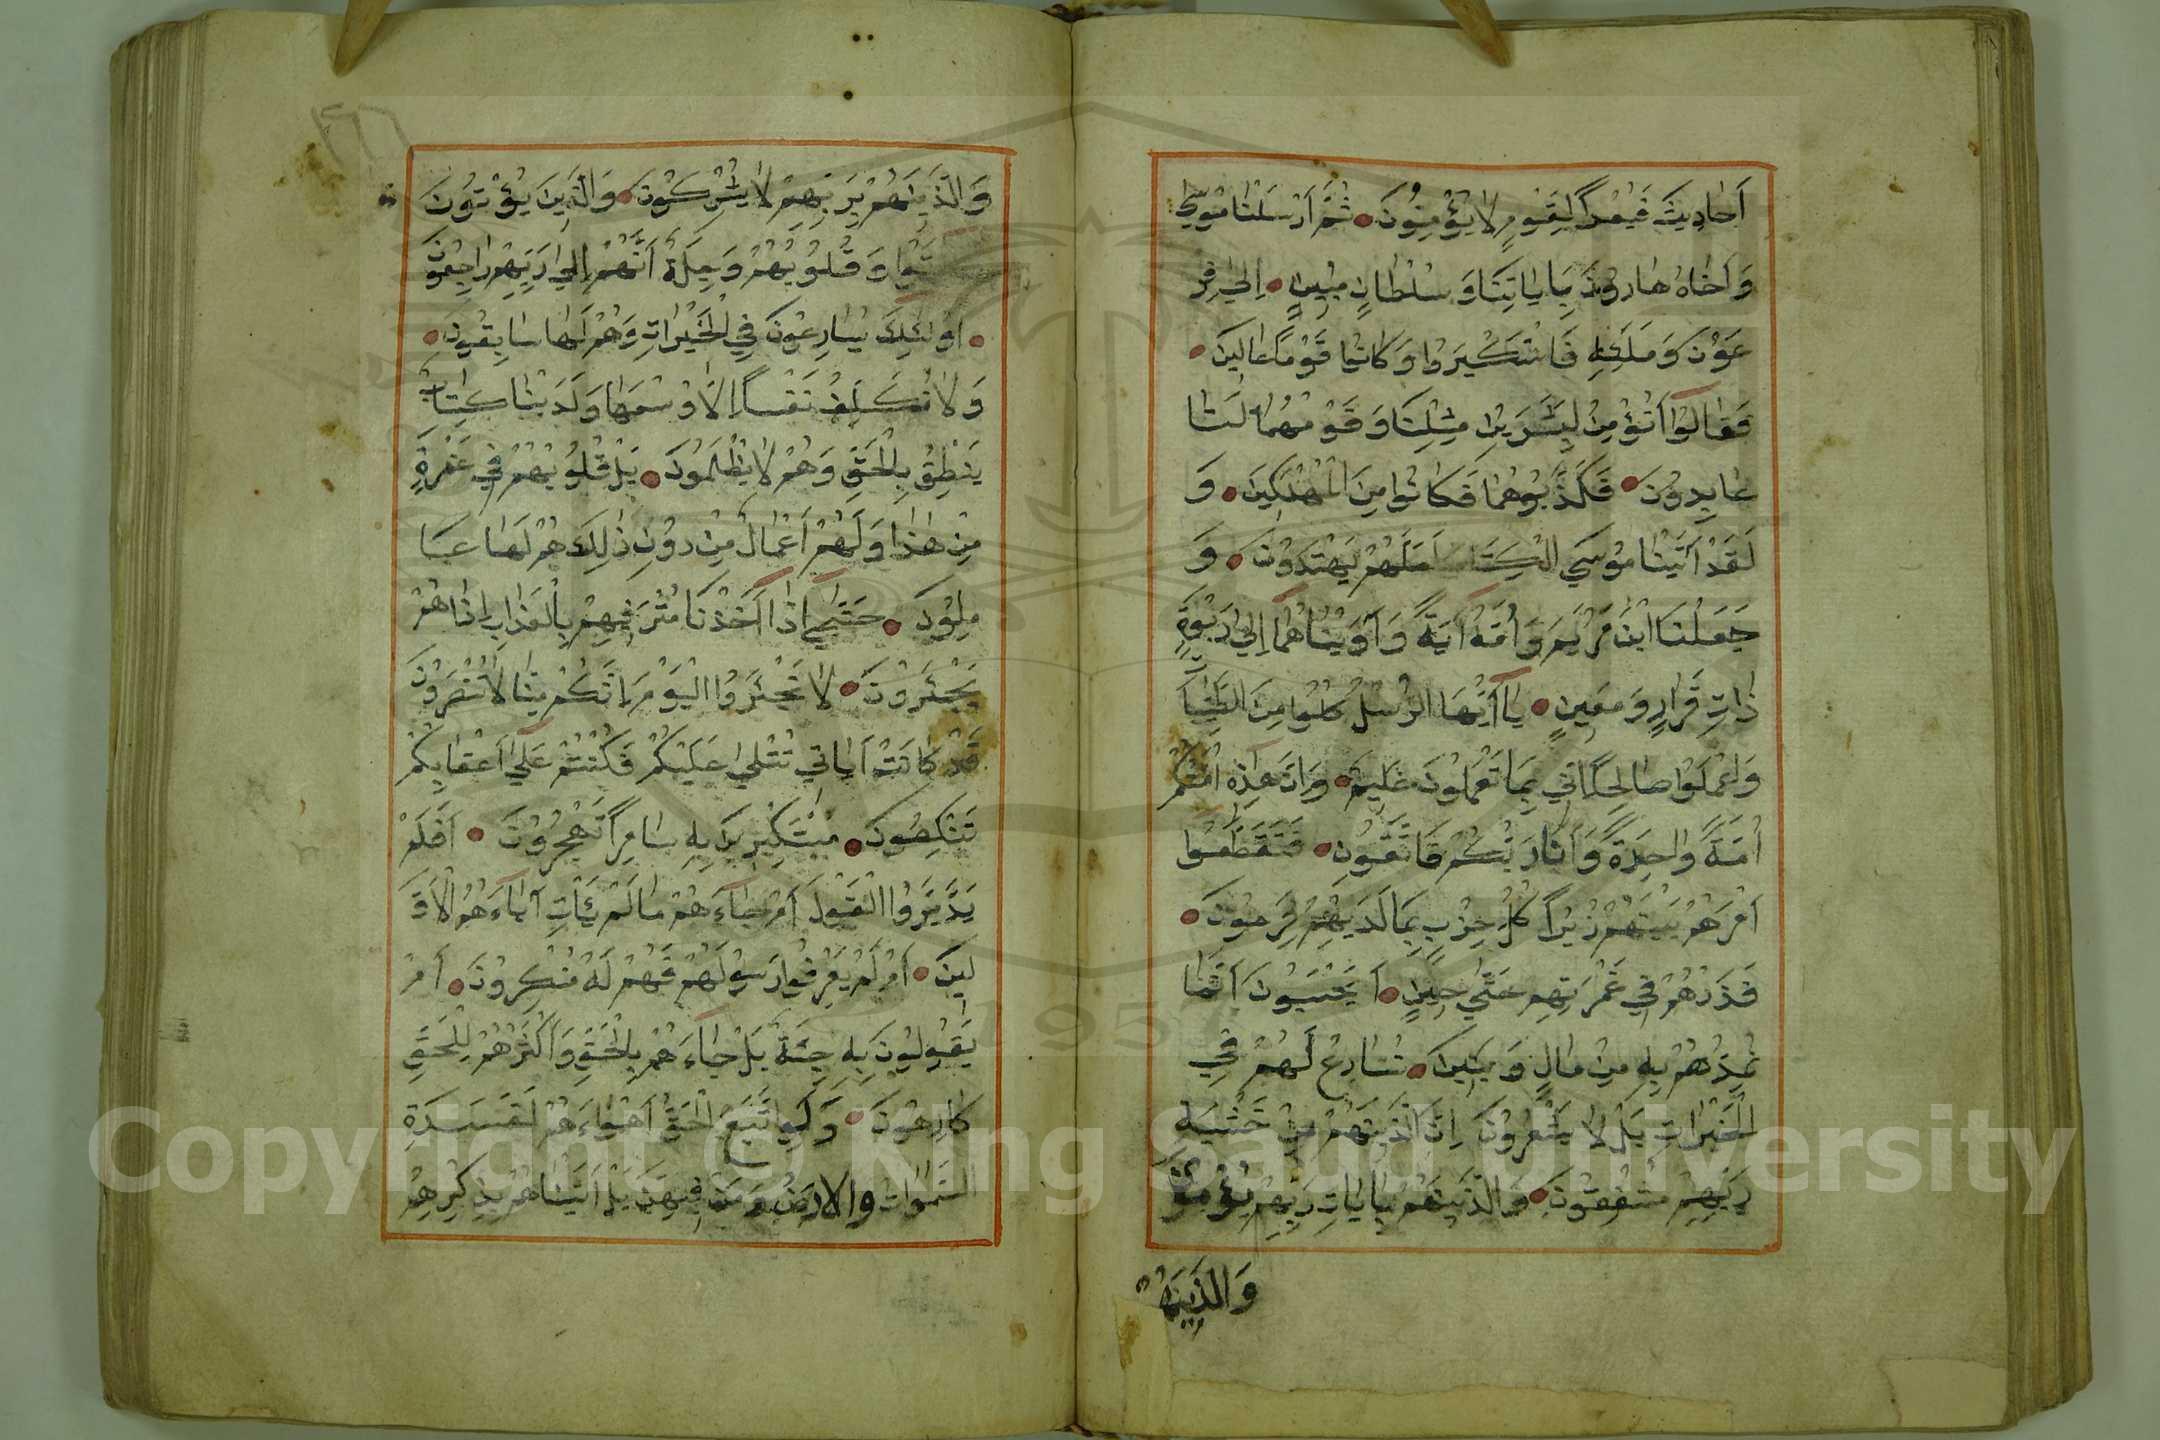 أَحَادِيثَ فَبُعْدًا لِقَوْمٍ لَا يُؤْمِنُونَ ثُمَّ أَرْسَلْنَا مُوسَى
وَأَخَاهُ هَارُونَ بِآيَاتِنَا وَسُلْطَانٍ مُبِينٍ إِلَى فِرْ
عَوْنَ وَمَلَئِهِ فَاسْتَكْبَرُوا وَكَانُوا قَوْمًا عَالِينَ
فَقَالُوا أَنُؤْمِنُ لِبَشَرَيْنِ مِثْلِنَا وَقَوْمُهُمَا لَنَا
عَابِدُونَ فَكَذَّبُوهُمَا فَكَانُوا مِنَ الْمُهْلَكِينَ وَ
لَقَدْ آتَيْنَا مُوسَى الْكِتَابَ لَعَلَّهُمْ يَهْتَدُونَ وَ
جَعَلْنَا ابْنَ مَرْيَمَ وَأُمَّهُ آيَةً وَآوَيْنَاهُمَا إِلَى رَبْوَةٍ
ذَاتِ قَرَارٍ وَمَعِينٍ يَا أَيُّهَا الرُّسُلُ كُلُوا مِنَ الطَّيِّبَاتِ
وَاعْمَلُوا صَالِحًا إِنِّي بِمَا تَعْمَلُونَ عَلِيمٌ وَإِنَّ هَذِهِ أُمَّتُكُمْ
أُمَّةً وَاحِدَةً وَأَنَا رَبُّكُمْ فَاتَّقُونِ فَتَقَطَّعُوا
أَمْرَهُمْ بَيْنَهُمْ زُبُرًا كُلُّ حِزْبٍ بِمَا لَدَيْهِمْ فَرِحُونَ
فَذَرْهُمْ فِي غَمْرَتِهِمْ حَتَّى حِينٍ أَيَحْسَبُونَ أَنَّمَا
نُمِدُّهُمْ بِهِ مِنْ مَالٍ وَبَنِينَ نُسَارِعُ لَهُمْ فِي
الْخَيْرَاتِ بَلْ لَا يَشْعُرُونَ إِنَّ الَّذِينَ هُمْ مِنْ خَشْيَةِ
رَبِّهِمْ مُشْفِقُونَ وَالَّذِينَ هُمْ بِآيَاتِ رَبِّهِمْ يُؤْمِنُونَ
وَالَّذِينَ هُمْ
وَالَّذِينَ هُمْ بِرَبِّهِمْ لَا يُشْرِكُونَ وَالَّذِينَ يُؤْتُونَ
وَقُلُوبُهُمْ وَجِلَةٌ أَنَّهُمْ إِلَى رَبِّهِمْ رَاجِعُونَ
أُولَئِكَ يُسَارِعُونَ فِي الْخَيْرَاتِ وَهُمْ لَهَا سَابِقُونَ
وَلَا نُكَلِّفُ نَفْسًا إِلَّا وُسْعَهَا وَلَدَيْنَا كِتَابٌ
يَنْطِقُ بِالْحَقِّ وَهُمْ لَا يُظْلَمُونَ بَلْ قُلُوبُهُمْ فِي غَمْرَةٍ
مِنْ هَذَا وَلَهُمْ أَعْمَالٌ مِنْ دُونِ ذَلِكَ هُمْ لَهَا عَا
مِلُونَ حَتَّى إِذَا أَخَذْنَا مُتْرَفِيهِمْ بِالْعَذَابِ إِذَا هُمْ
يَجْئَرُونَ لَا تَجْئَرُوا الْيَوْمَ إِنَّكُمْ مِنَّا لَا تُنْصَرُونَ
قَدْ كَانَتْ آيَاتِي تُتْلَى عَلَيْكُمْ فَكُنْتُمْ عَلَى أَعْقَابِكُمْ
تَنْكِصُونَ مُسْتَكْبِرِينَ بِهِ سَامِرًا تَهْجُرُونَ أَفَلَمْ
يَدَّبَّرُوا الْقَوْلَ أَمْ جَاءَهُمْ مَا لَمْ يَأْتِ آبَاءَهُمُ الْأَوَّ
لِينَ أَمْ لَمْ يَعْرِفُوا رَسُولَهُمْ فَهُمْ لَهُ مُنْكِرُونَ أَمْ
يَقُولُونَ بِهِ جِنَّةٌ بَلْ جَاءَهُمْ بِالْحَقِّ وَأَكْثَرُهُمْ لِلْحَقِّ
كَارِهُونَ وَلَوِ اتَّبَعَ الْحَقُّ أَهْوَاءَهُمْ لَفَسَدَتِ
السَّمَوَاتُ وَالْأَرْضُ وَمَنْ فِيهِنَّ بَلْ أَتَيْنَاهُمْ بِذِكْرِهِمْ
Copyright © King Saud University
1957